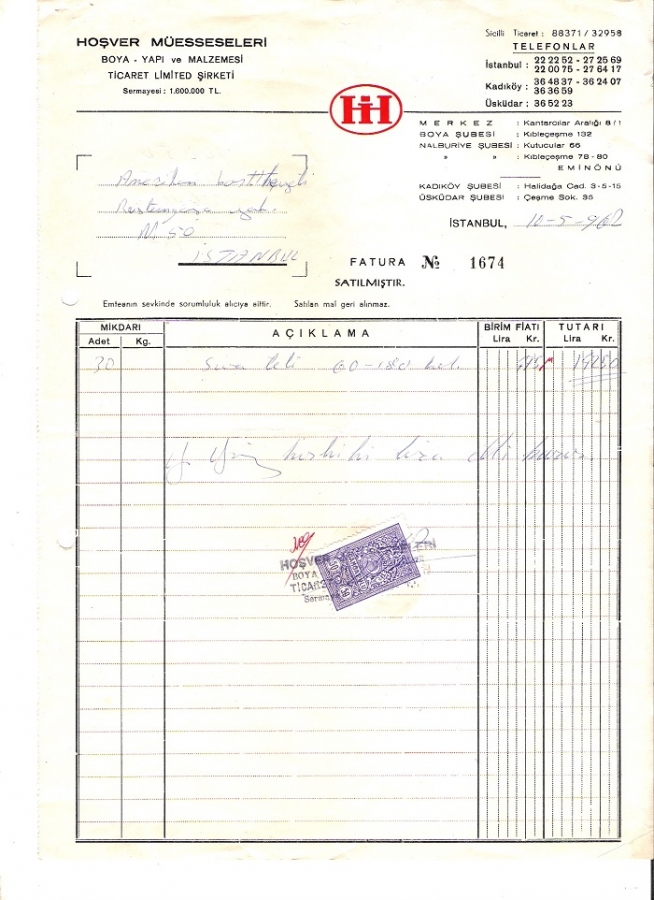 HOŞVER MÜESSESELERİ
BOYA - YAPI ve MALZEMESİ
TİCARET LİMİTED ŞİRKETİ
Sermayesi : 1.600.000 TL.
HH
Sicilli Ticaret : 88371 / 32958
TELEFONLAR
İstanbul : 22 22 52 - 27 25 69
22 00 75 - 27 64 17
Kadıköy : 36 48 37 - 36 24 07
36 36 59
Üsküdar : 36 52 23
MERKEZ : Kantarcılar Aralığı 8/1
BOYA ŞUBESİ : Kıbleçeşme 132
NALBURİYE ŞUBESİ : Kutucular 66
» » : Kıbleçeşme 78 - 80
EMİNÖNÜ
KADIKÖY ŞUBESİ : Halidağa Cad. 3-5-15
ÜSKÜDAR ŞUBESİ : Çeşme Sok. 35
Amerikan
No 50
İSTANBUL
İSTANBUL, 10-5-962
FATURA № 1674
SATILMIŞTIR.
Emteanın sevkinde sorumluluk alıcıya aittir. Satılan mal geri alınmaz.
MİKDARI AÇIKLAMA BİRİM FİATI TUTARI
Adet Kg. Lira Kr. Lira Kr.
30 Sıva teli 60-180
lira elli
HOŞVER
BOYA
TİCARE